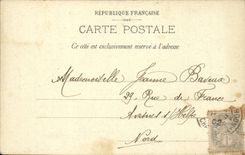 RÉPUBLIQUE FRANÇAISE
CARTE POSTALE
Ce côté est exclusivement réservé à l'adresse
Mademoiselle Jeanne Baveux
29 Rue de France
Avesnes s/Helpe
Nord